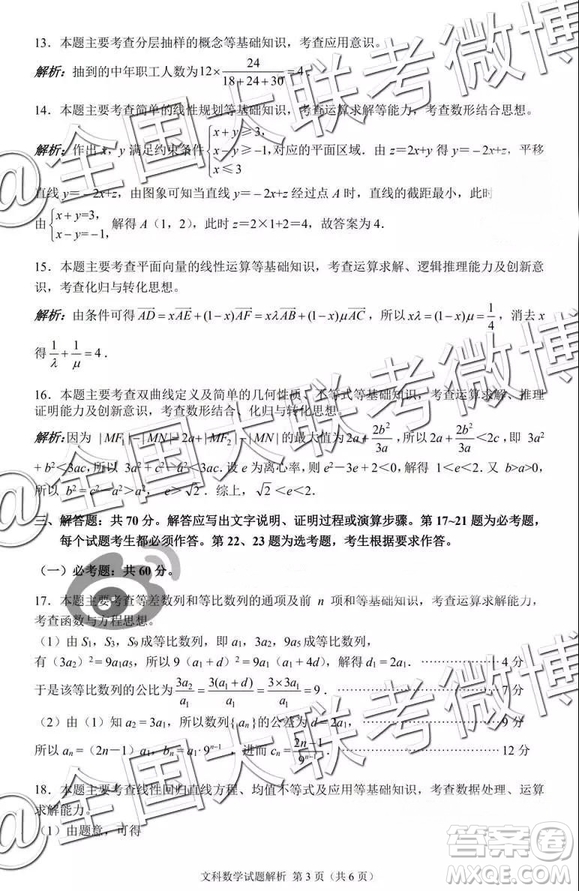 13．本题主要考查分层抽样的概念等基础知识，考查应用意识．
解析：抽到的中年职工人数为12×24/(18+24+30)=4．
14．本题主要考查简单的线性规划等基础知识，考查运算求解等能力，考查数形结合思想．
解析：作出 x，y 满足约束条件{x+y≥3，x－y≥-1，x≤3 对应的平面区域．由 z＝2x+y 得 y＝－2x+z，平移
直线 y＝－2x+z，由图象可知当直线 y＝－2x+z 经过点 A 时，直线的截距最小，此时
由{x+y=3，x－y=－1，解得 A（1，2），此时 z＝2×1+2＝4，故答案为 4．
15．本题主要考查平面向量的线性运算等基础知识，考查运算求解、逻辑推理能力及创新意
识，考查化归与转化思想．
解析：由条件可得 AD = xAE+(1－x)AF = xλAB+(1－x)μAC，所以 xλ=(1－x)μ=1/4，消去 x
得 1/λ+1/μ=4．
16．本题主要考查双曲线定义及简单的几何性质、不等式等基础知识，考查运算求解、推理
证明能力及创新意识，考查数形结合、化归与转化思想．
解析：因为 |MF₁|－|MN|=2a+|MF₂|－|MN|的最大值为2a+2b²/3a，所以2a+2b²/3a<2c，即 3a²
+ b²<3ac，所以 3a²+c²－a²<3ac．设 e 为离心率，则 e²－3e+2<0，解得 1<e<2．又 b>a>0，
所以 b²=c²－a²>a²，e>√2．综上，√2<e<2．
三、解答题：共 70 分。解答应写出文字说明、证明过程或演算步骤。第 17~21 题为必考题，
每个试题考生都必须作答。第 22、23 题为选考题，考生根据要求作答。
（一）必考题：共 60 分。
17．本题主要考查等差数列和等比数列的通项及前 n 项和等基础知识，考查运算求解能力，
考查函数与方程思想．
（1）由 S₁，S₃，S₉成等比数列，即 a₁，3a₂，9a₅成等比数列，
有（3a₂）²＝9a₁a₅，所以 9（a₁+d）²＝9a₁（a₁+4d），解得 d₁＝2a₁．…………………4 分
于是该等比数列的公比为 3a₂/a₁=3(a₁+d)/a₁=3×3a₁/a₁=9．…………………7 分
（2）由（1）知 a₂＝3a₁，所以数列{aₙ}的公差为 d＝2a₁，…………………9 分
所以 aₙ＝（2n－1）a₁，bₙ=a₁·9ⁿ⁻¹，进而 cₙ=(2n－1)/9ⁿ⁻¹．…………………12 分
18．本题主要考查线性回归直线方程、均值不等式等基础知识，考查数据处理、运算
求解能力．
（1）由题意，可得
文科数学试题解析 第 3 页（共 6 页）
@全国大联考微博
@全国大联考微博
@全国大联考微博
答案圈
MXQE.COM